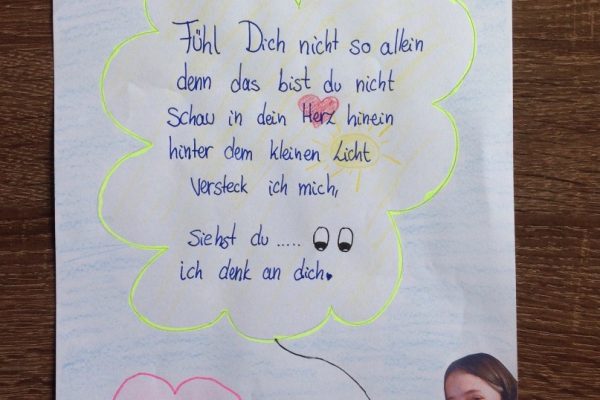 Fühl Dich nicht so allein
denn das bist du nicht
Schau in dein Herz hinein
hinter dem kleinen Licht
versteck ich mich,
siehst du .....
ich denk an dich.